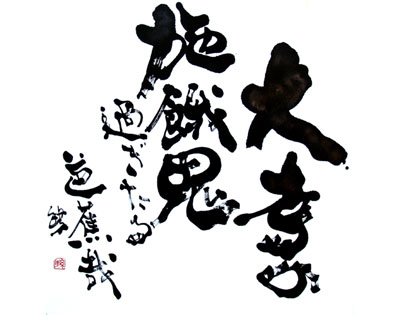 大寺の
施餓鬼
過ぎたる
芭蕉哉